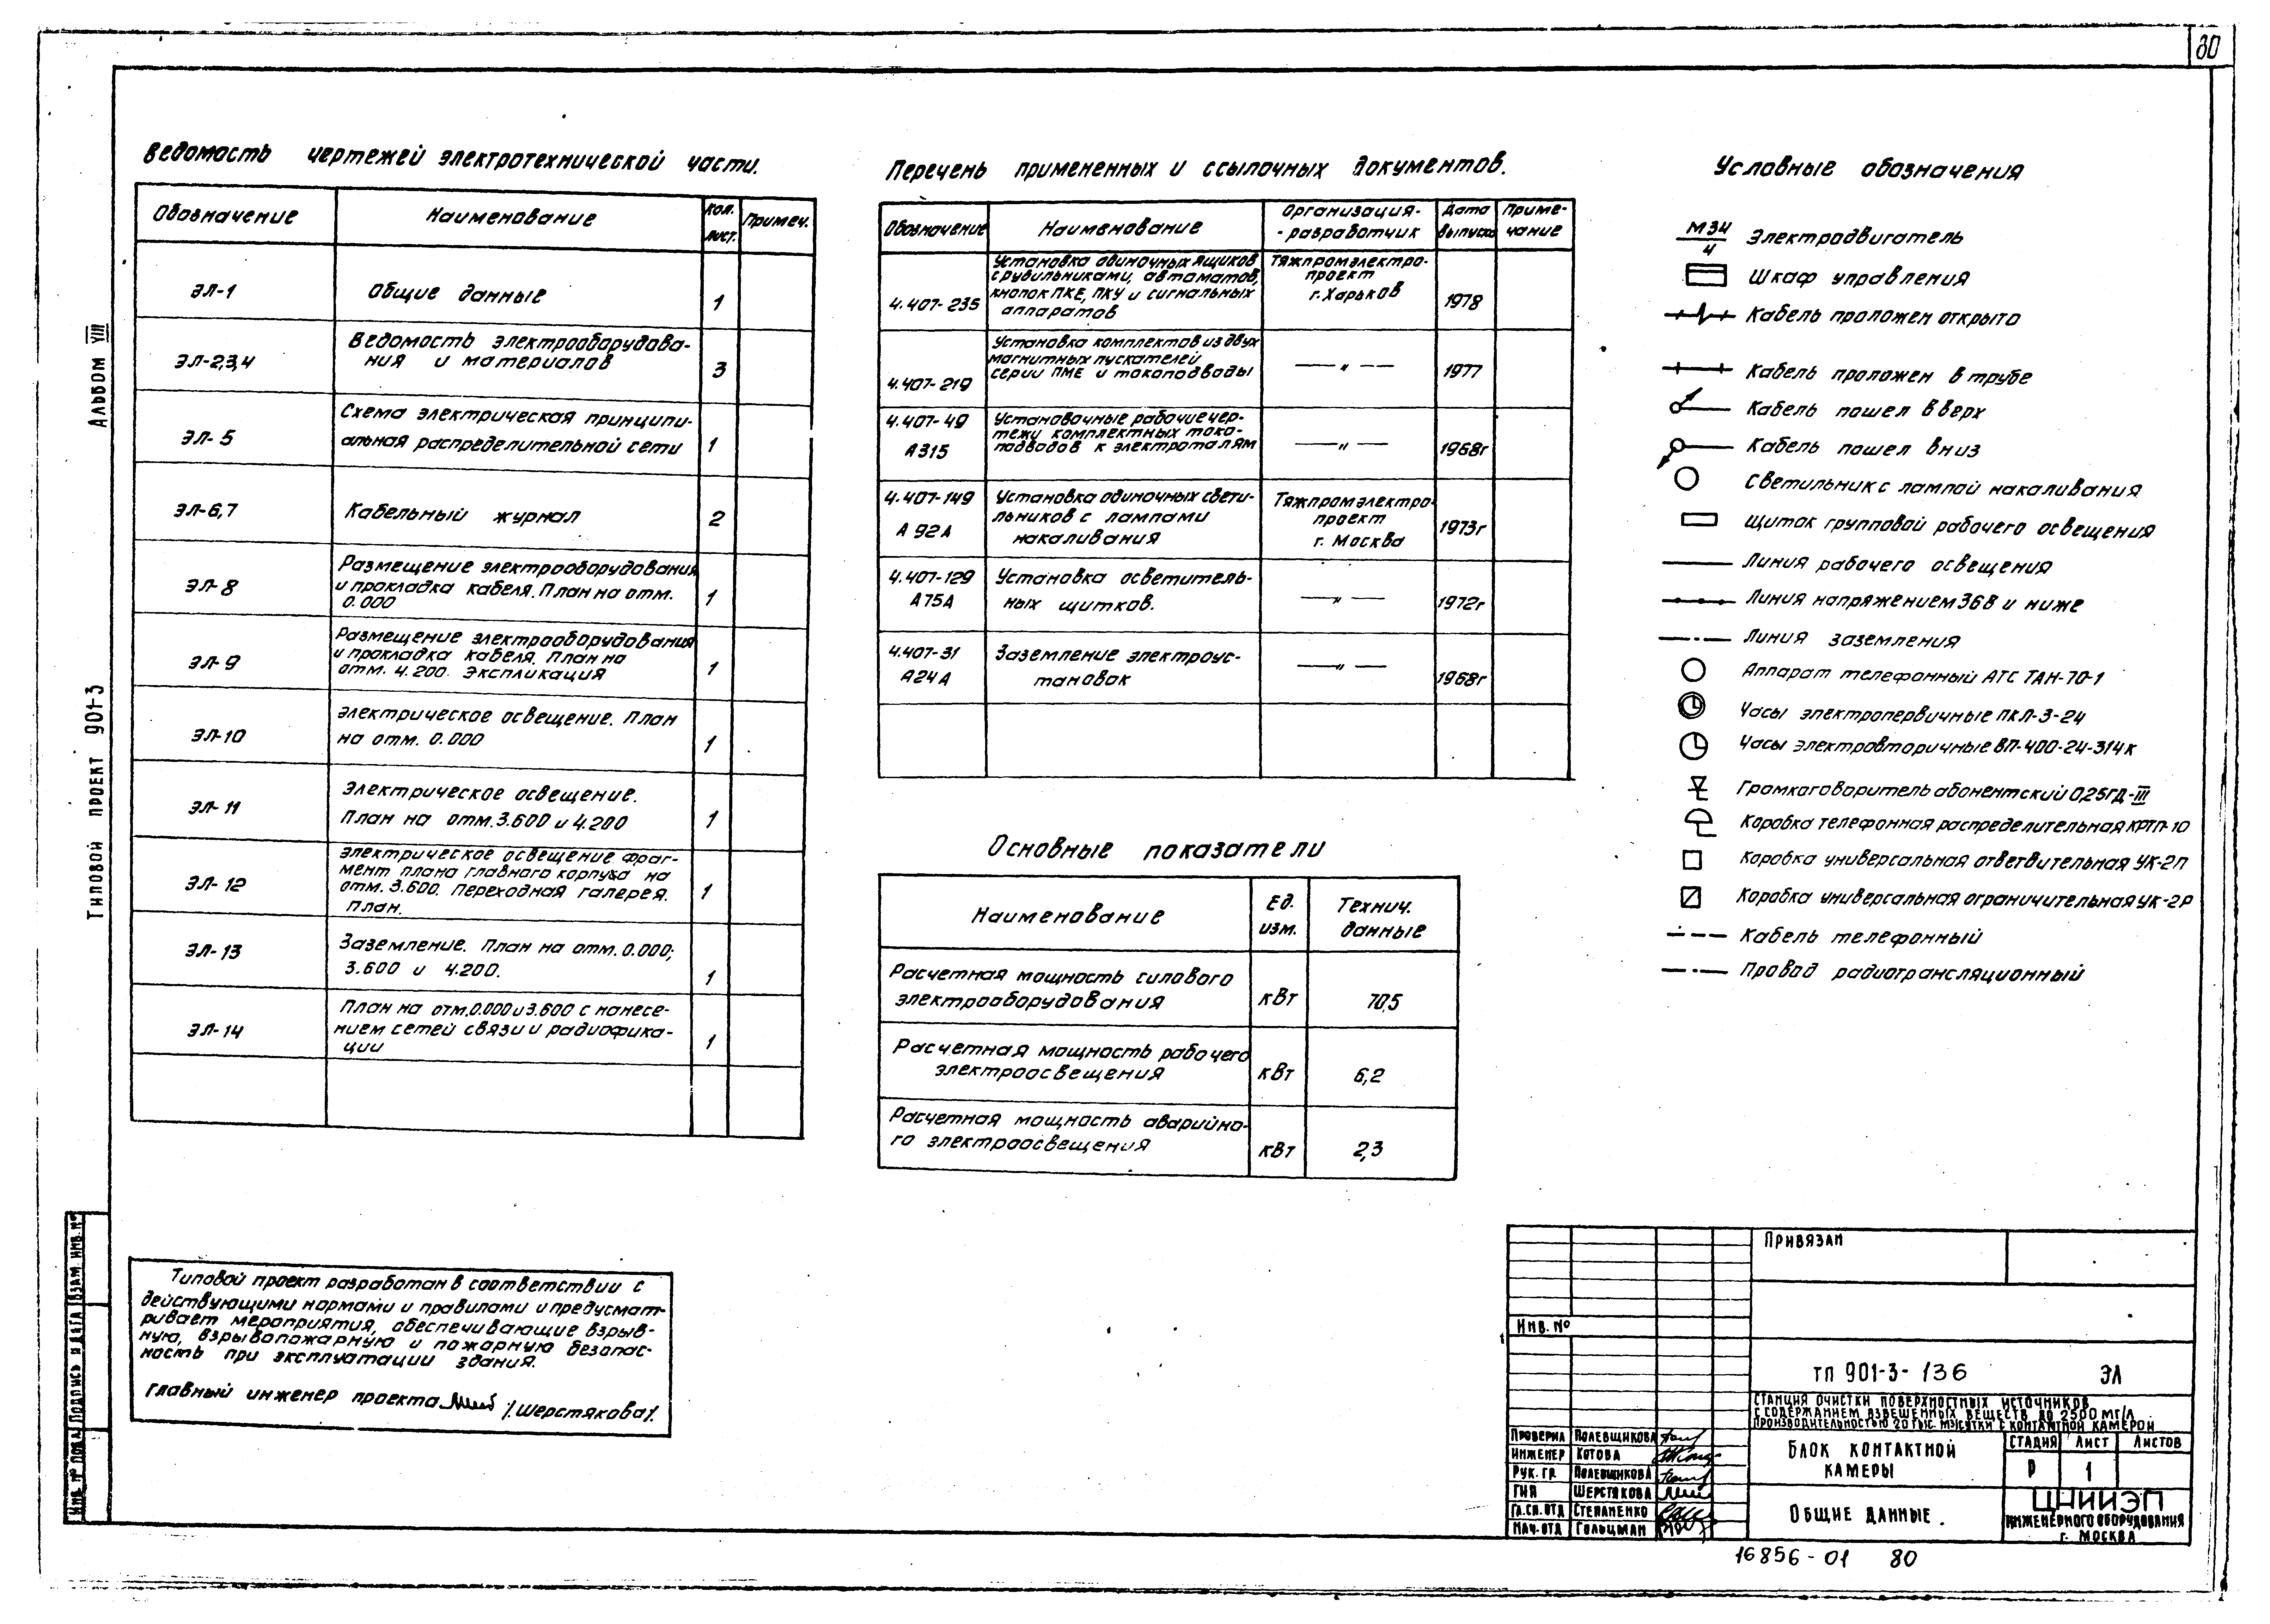 80
Альбом VIII
Типовой проект 901-3
Ведомость чертежей электротехнической части.
Обозначение
Наименование
Кол.
лист.
Примеч.
ЭЛ-1
Общие данные
1
ЭЛ-2,3,4
Ведомость электрооборудова-
ния и материалов
3
ЭЛ-5
Схема электрическая принципи-
альная распределительной сети
1
ЭЛ-6,7
Кабельный журнал
2
ЭЛ-8
Размещение электрооборудования
и прокладка кабеля. План на отм.
0.000
1
ЭЛ-9
Размещение электрооборудования
и прокладка кабеля. План на
отм. 4.200. Экспликация
1
ЭЛ-10
Электрическое освещение. План
на отм. 0.000
1
ЭЛ-11
Электрическое освещение.
План на отм. 3.600 и 4.200
1
ЭЛ-12
Электрическое освещение. Фраг-
мент плана главного корпуса на
отм. 3.600. Переходная галерея.
План.
1
ЭЛ-13
Заземление. План на отм. 0.000;
3.600 и 4.200.
1
ЭЛ-14
План на отм. 0.000 и 3.600 с нанесе-
нием сетей связи и радиофика-
ции
1
Перечень примененных и ссылочных документов.
Обозначение
Наименование
Организация-
-разработчик
Дата
выпуска
Приме-
чание
4.407-235
Установка одиночных ящиков
с рубильниками, автоматов,
кнопок ПКЕ, ПКУ и сигнальных
аппаратов
Тяжпромэлектро-
проект
г. Харьков
1978
4.407-219
Установка комплектов из двух
магнитных пускателей
серии ПМЕ и токоподводы
— " —
1977
4.407-49
А315
Установочные рабочие чер-
тежи комплектных токо-
подводов к электроталям
— " —
1968г
4.407-149
А 92А
Установка одиночных свети-
льников с лампами
накаливания
Тяжпромэлектро-
проект
г. Москва
1973г
4.407-129
А75А
Установка осветитель-
ных щитков.
— " —
1972г
4.407-31
А24А
Заземление электроус-
тановок
— " —
1968г
Основные показатели
Наименование
Ед.
изм.
Технич.
данные
Расчетная мощность силового
электрооборудования
кВт
70,5
Расчетная мощность рабочего
электроосвещения
кВт
6,2
Расчетная мощность аварийно-
го электроосвещения
кВт
2,3
Условные обозначения
М34
4
Электродвигатель
Шкаф управления
Кабель проложен открыто
Кабель проложен в трубе
Кабель пошел вверх
Кабель пошел вниз
Светильник с лампой накаливания
Щиток групповой рабочего освещения
Линия рабочего освещения
Линия напряжением 36В и ниже
Линия заземления
Аппарат телефонный АТС ТАН-70-1
Часы электропервичные ПКЛ-3-24
Часы электровторичные ВП-400-24-314К
Громкоговоритель абонентский 0,25ГД-III
Коробка телефонная распределительная КРТП-10
Коробка универсальная ответвительная УК-2П
Коробка универсальная ограничительная УК-2Р
Кабель телефонный
Провод радиотрансляционный
Типовой проект разработан в соответствии с
действующими нормами и правилами и предусмат-
ривает мероприятия, обеспечивающие взрыв-
ную, взрывопожарную и пожарную безопас-
ность при эксплуатации здания.
Главный инженер проекта /Шерстякова/.
Инв. № подл.
Подпись и дата
Взам. инв. №
Привязан
Инв. №
ТП 901-3-136
ЭЛ
Станция очистки поверхностных источников
с содержанием взвешенных веществ до 2500 мг/л
производительностью 20 тыс. м3/сутки с контактной камерой
Проверила Полевщикова
Инженер Котова
Рук. гр. Полевщикова
ГИП Шерстякова
Гл. сп. отд Степаненко
Нач. отд Гольцман
Блок контактной
камеры
Стадия
Лист
Листов
Р
1
Общие данные.
ЦНИИЭП
инженерного оборудования
г. Москва
16856-01 80